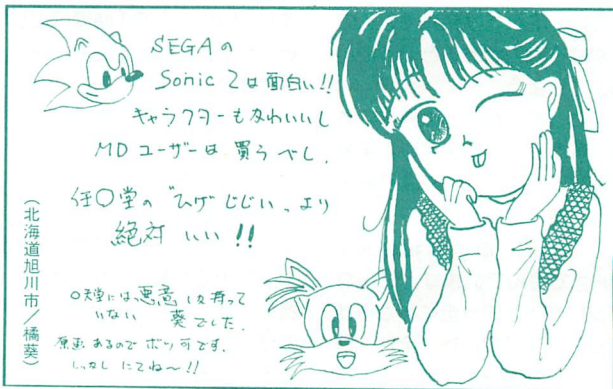 SEGAの
Sonic 2は面白い!!
キャラクターもかわいいし
MDユーザーは買うべし.
任〇堂の"ひげじじい"より
絶対いい!!
〇天堂には、悪意しか持って
いない 葵でした.
原画あるのでボツ可です.
しっかしにてね〜!!
(北海道旭川市/橘葵)